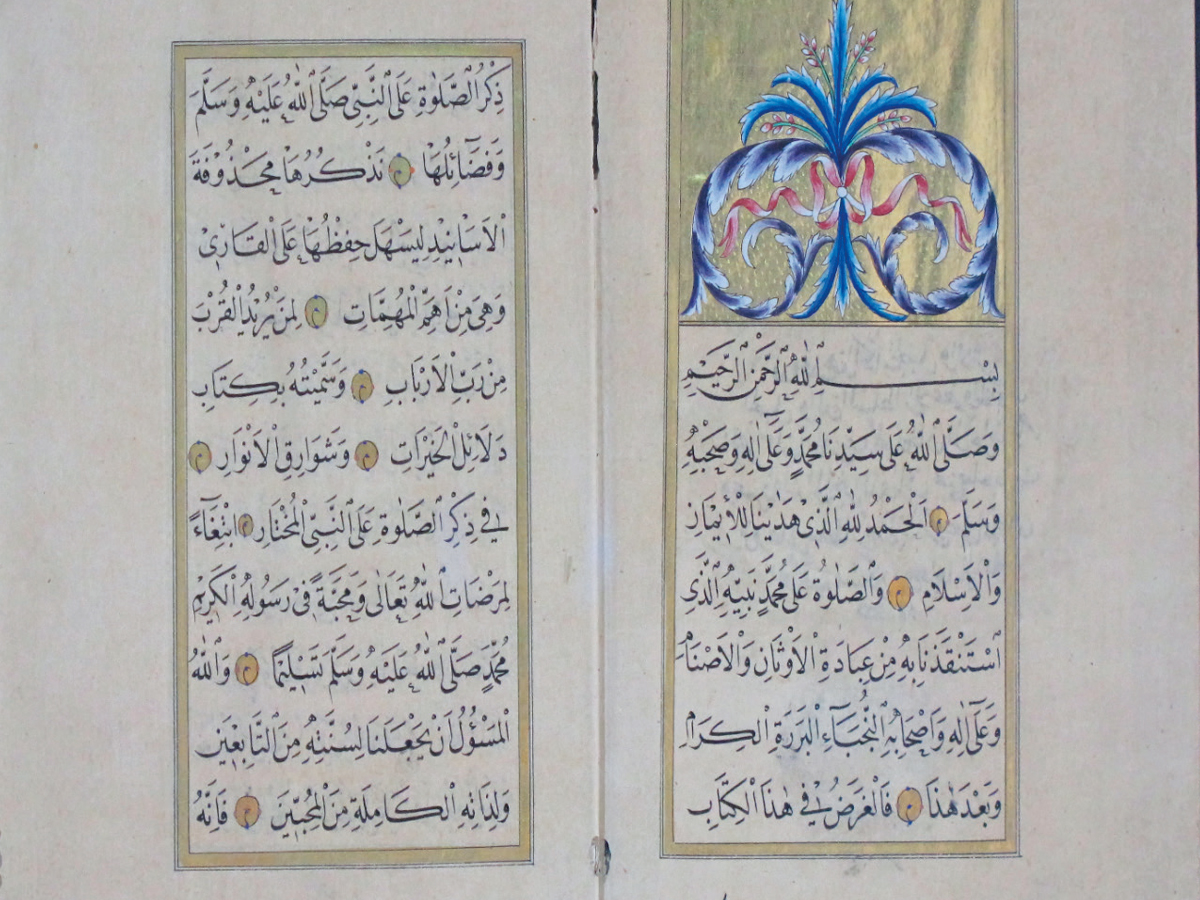 بِسْمِ اللّٰهِ الرَّحْمٰنِ الرَّحِيْمِ
وَصَلَّى اللّٰهُ عَلٰى سَيِّدِنَا مُحَمَّدٍ وَعَلٰٓى اٰلِهِ وَصَحْبِهِ
وَسَلَّمَ اَلْحَمْدُ لِلّٰهِ الَّذِى هَدٰينَا لِلْاٖيمَانِ
وَالْاِسْلَامِ وَالصَّلٰوةُ عَلٰى مُحَمَّدٍ نَبِيِّهِ الَّذِى
اسْتَنْقَذَنَا بِهِ مِنْ عِبَادَةِ الْاَوْثَانِ وَالْاَصْنَامِ
وَعَلٰٓى اٰلِهِ وَاَصْحَابِهِ النُّجَبَآءِ الْبَرَرَةِ الْكِرَامِ
وَبَعْدَ هٰذَا فَالْغَرَضُ فِى هٰذَا الْكِتَابِ
ذِكْرُ الصَّلٰوةِ عَلَى النَّبِىِّ صَلَّى اللّٰهُ عَلَيْهِ وَسَلَّمَ
وَفَضَآئِلُهَا نَذْكُرُهَا مَحْذُوْفَةَ
الْاَسَانِيْدِ لِيَسْهَلَ حِفْظُهَا عَلَى الْقَارِئِ
وَهِىَ مِنْ اَهَمِّ الْمُهِمَّاتِ لِمَنْ يُرِيْدُ الْقُرْبَ
مِنْ رَبِّ الْاَرْبَابِ وَسَمَّيْتُهُ بِكِتَابِ
دَلَائِلِ الْخَيْرَاتِ وَشَوَارِقِ الْاَنْوَارِ
فِى ذِكْرِ الصَّلٰوةِ عَلَى النَّبِىِّ الْمُخْتَارِ ابْتِغَآءً
لِمَرْضَاتِ اللّٰهِ تَعَالٰى وَمَحَبَّةً فِى رَسُوْلِهِ الْكَرِيْمِ
مُحَمَّدٍ صَلَّى اللّٰهُ عَلَيْهِ وَسَلَّمَ تَسْلِيْمًا وَاللّٰهُ
الْمَسْؤُلُ اَنْ يَجْعَلَنَا لِسُنَّتِهِ مِنَ التَّابِعِيْنَ
وَلِذَاتِهِ الْكَامِلَةِ مِنَ الْمُحِبِّيْنَ فَاِنَّهُ